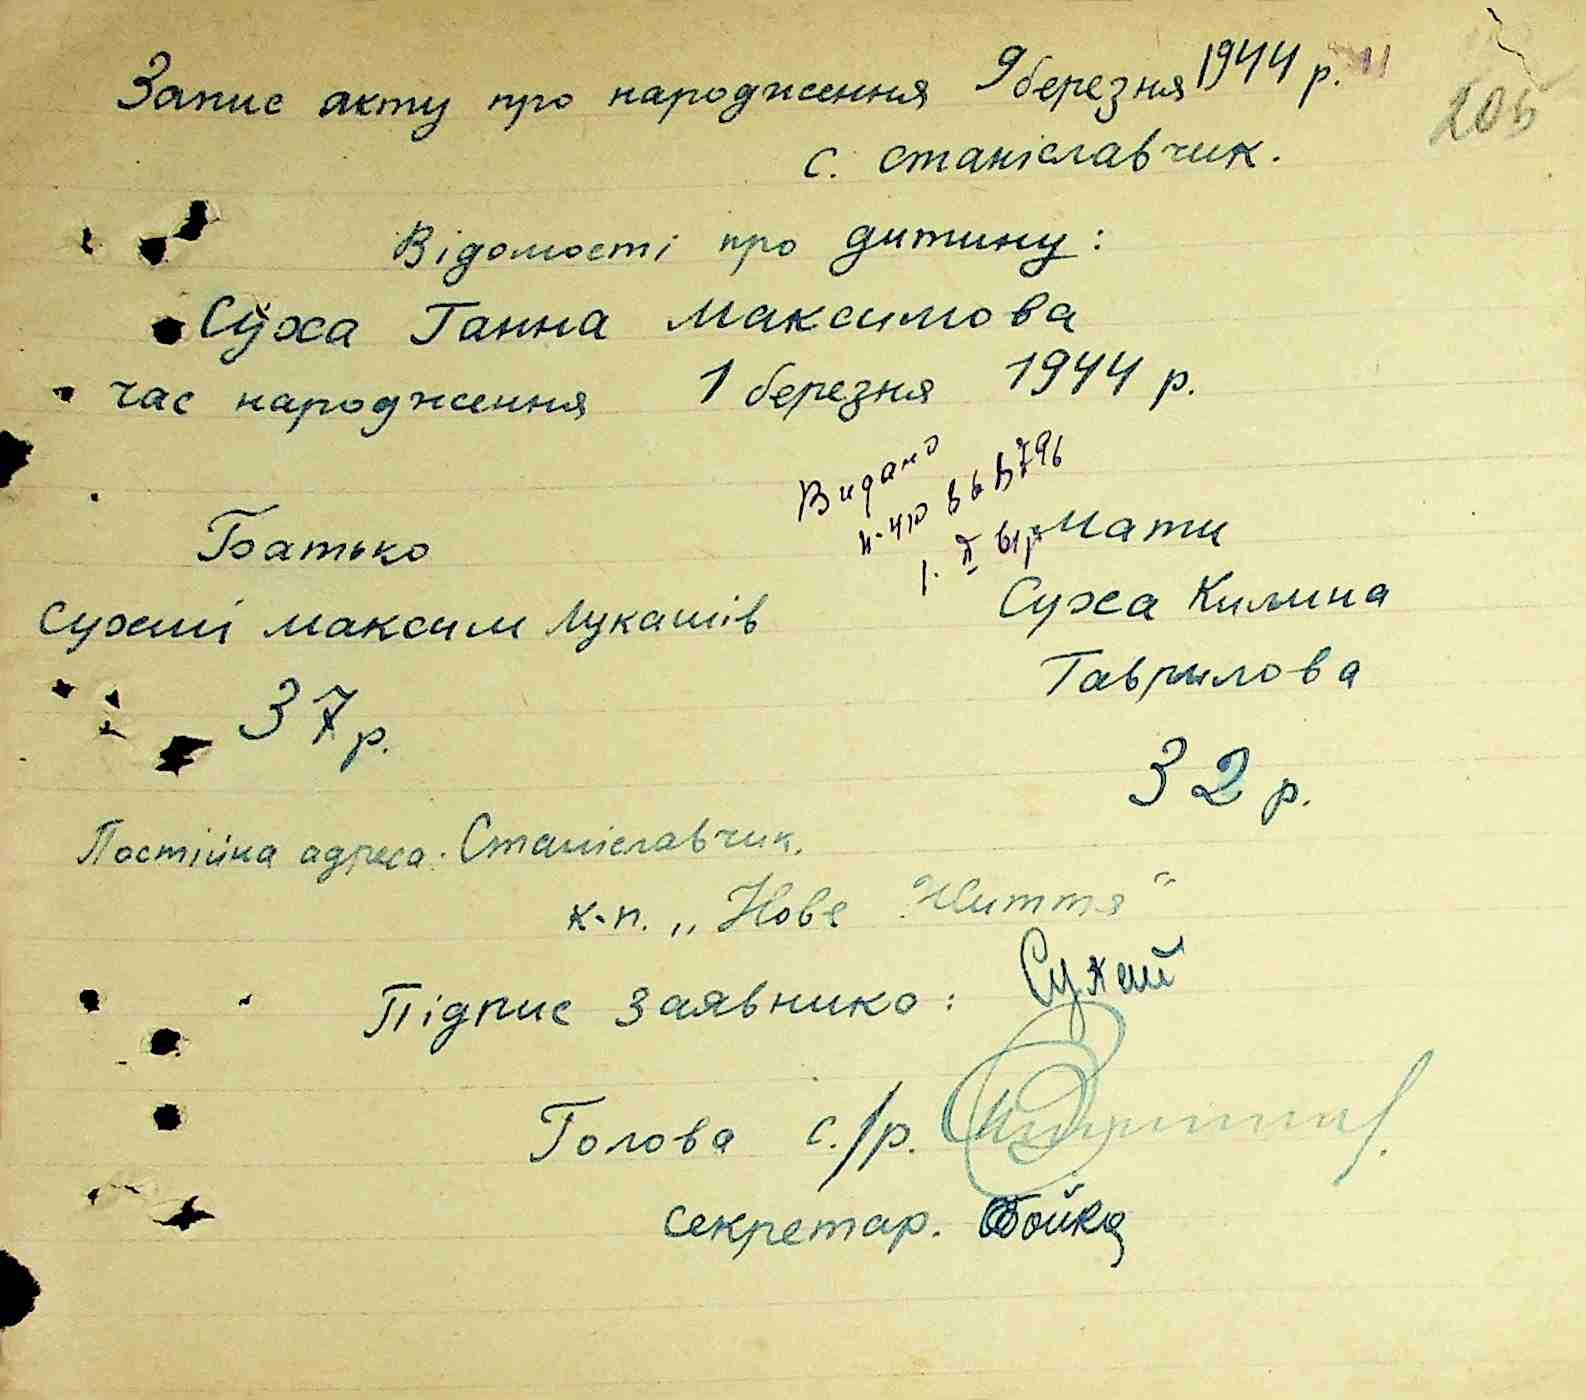 Запис акту про народження 9 березня 1944 р.
с. Станіславчик.
Відомості про дитину:
Суха Ганна Максимова
час народження 1 березня 1944 р.
Видано
Батько
Мати
Сухий Максим Лукашів
Суха Килина
Гаврилова
37 р.
32 р.
Постійна адреса. Станіславчик.
к-п. „Нове Життя“
Підпис заявнико: Сухий
Голова с./р.
секретар. Бойко